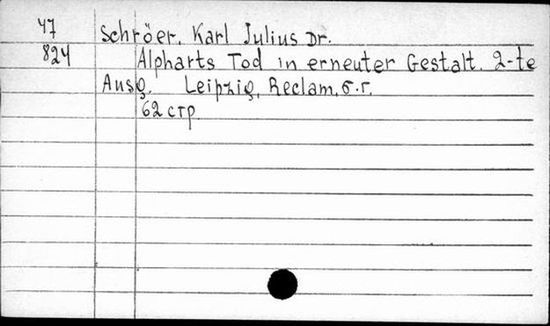 47
824
Schröer, Karl Julius Dr.
Alpharts Tod in erneuter Gestalt. 2-te
Ausg. Leipzig, Reclam, б.г.
62 стр.